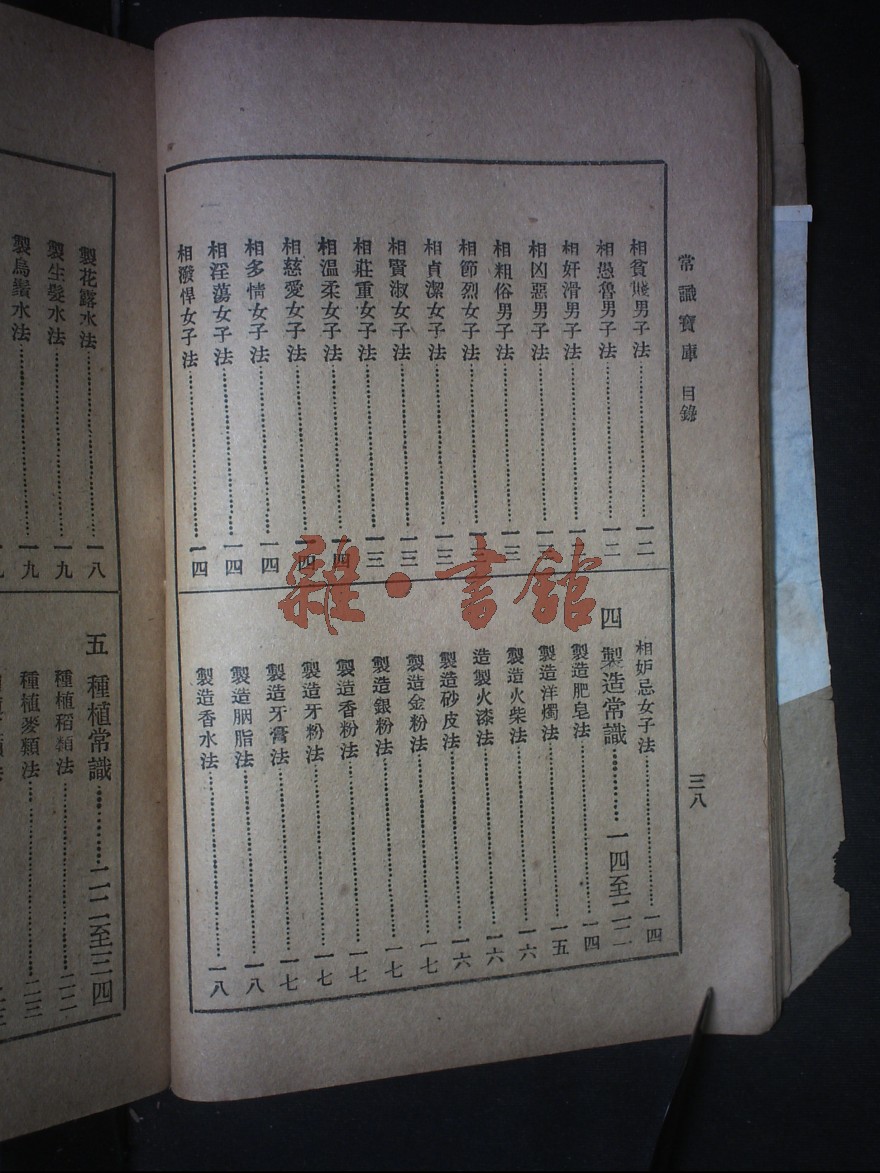 常識寶庫 目錄
三八
相貧賤男子法 一二
相愚魯男子法 一二
相奸滑男子法
相凶惡男子法
相粗俗男子法 一三
相節烈女子法
相貞潔女子法 一三
相賢淑女子法 一三
相莊重女子法 一三
相溫柔女子法 一四
相慈愛女子法 一四
相多情女子法 一四
相淫蕩女子法 一四
相潑悍女子法 一四
相妒忌女子法 一四
四 製造常識 一四至二二
製造肥皂法 一四
製造洋燭法 一五
製造火柴法 一六
造製火漆法 一六
製造砂皮法 一六
製造金粉法 一七
製造銀粉法 一七
製造香粉法 一七
製造牙粉法 一七
製造牙膏法 一七
製造胭脂法 一八
製造香水法 一八
製花露水法 一八
製生髮水法 一九
製烏鬚水法
五 種植常識 二二至三四
種植稻類法 二二
種植麥類法 二三
雜·書館